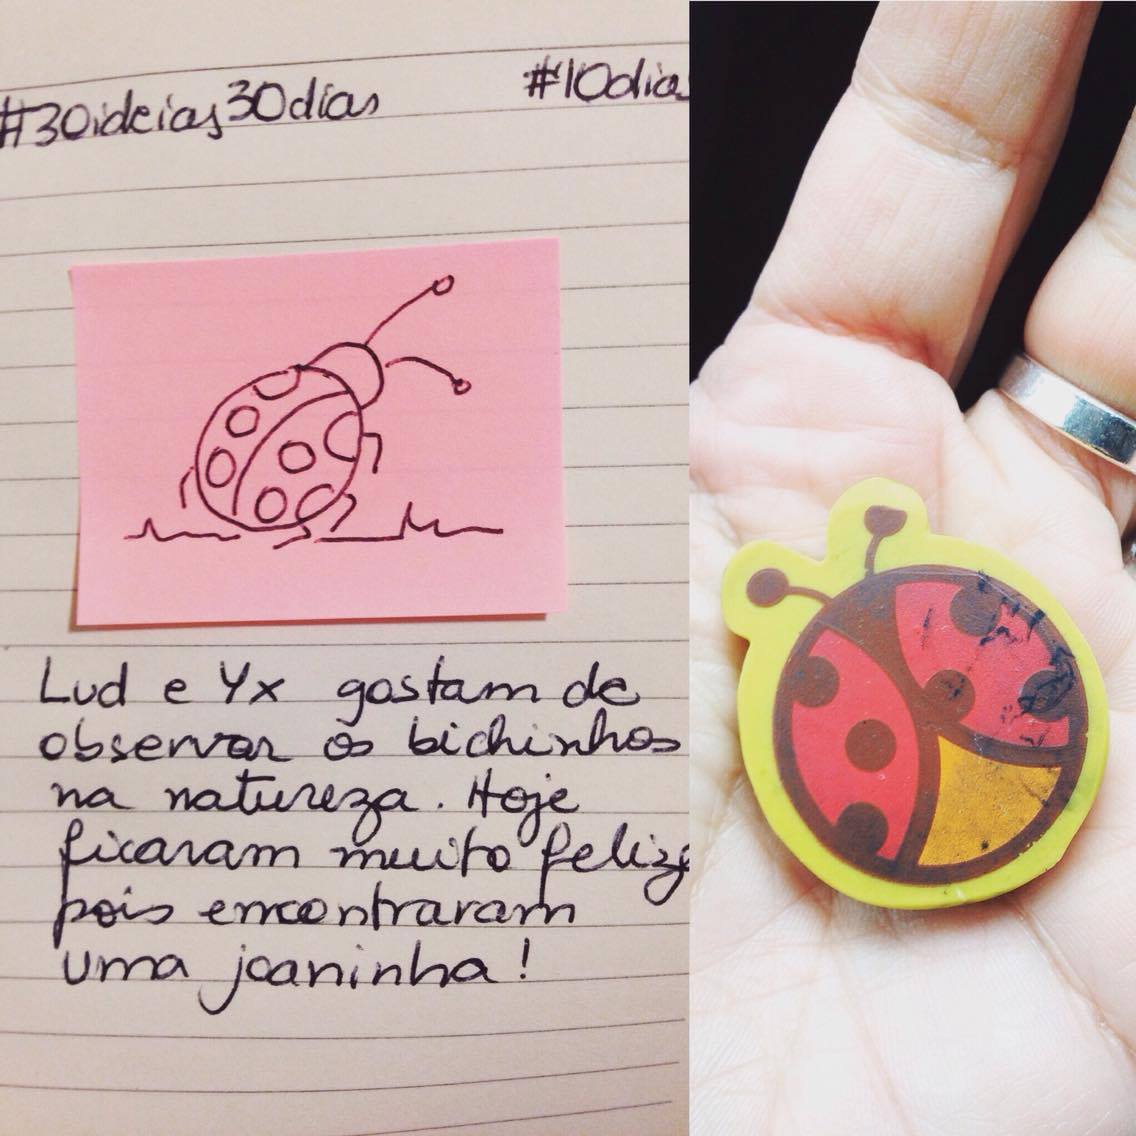 #30ideias30dias #10dias
Lud e Yx gostam de
observar os bichinhos
na natureza. Hoje
ficaram muito felize
pois encontraram
uma joaninha!